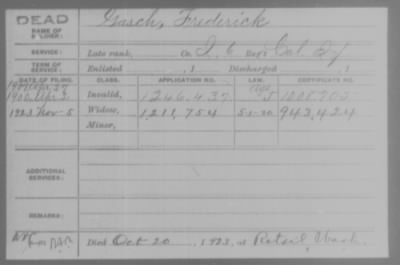 DEAD Gasch, Frederick
NAME OF SOLDIER:
SERVICE: Late rank, Co. I, 6 Reg't Cal. Inf
TERM OF SERVICE: Enlisted , 1 Discharged , 1
DATE OF FILING. CLASS. APPLICATION NO. LAW. CERTIFICATE NO.
1900 Apr 2 Invalid, 1246,437
1923 Nov-5 Widow, 1,211,754 943,424
Minor,
ADDITIONAL SERVICES:
REMARKS:
Died Oct 20 , 1923, at Retsil Wash.